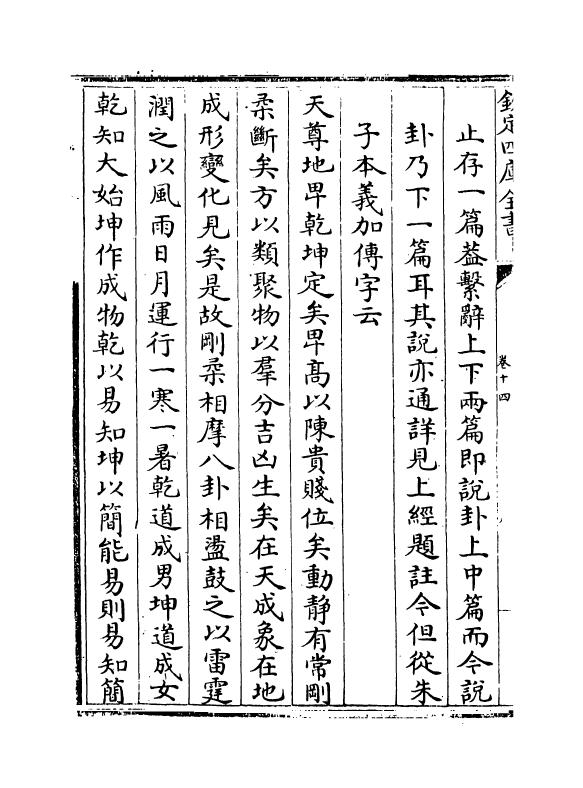 欽定四庫全書
卷十四
止存一篇葢繫辭上下兩篇即說卦上中篇而今說
卦乃下一篇耳其說亦通詳見上經題註今但從朱
子本義加傳字云
天尊地卑乾坤定矣卑髙以陳貴賤位矣動靜有常剛
柔斷矣方以類聚物以羣分吉凶生矣在天成象在地
成形變化見矣是故剛柔相摩八卦相盪鼓之以雷霆
潤之以風雨日月運行一寒一暑乾道成男坤道成女
乾知大始坤作成物乾以易知坤以簡能易則易知簡